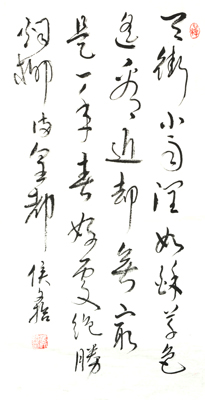 天街小雨润如酥草色
遥看近却无最
是一年春好处绝胜
烟柳满皇都 侯